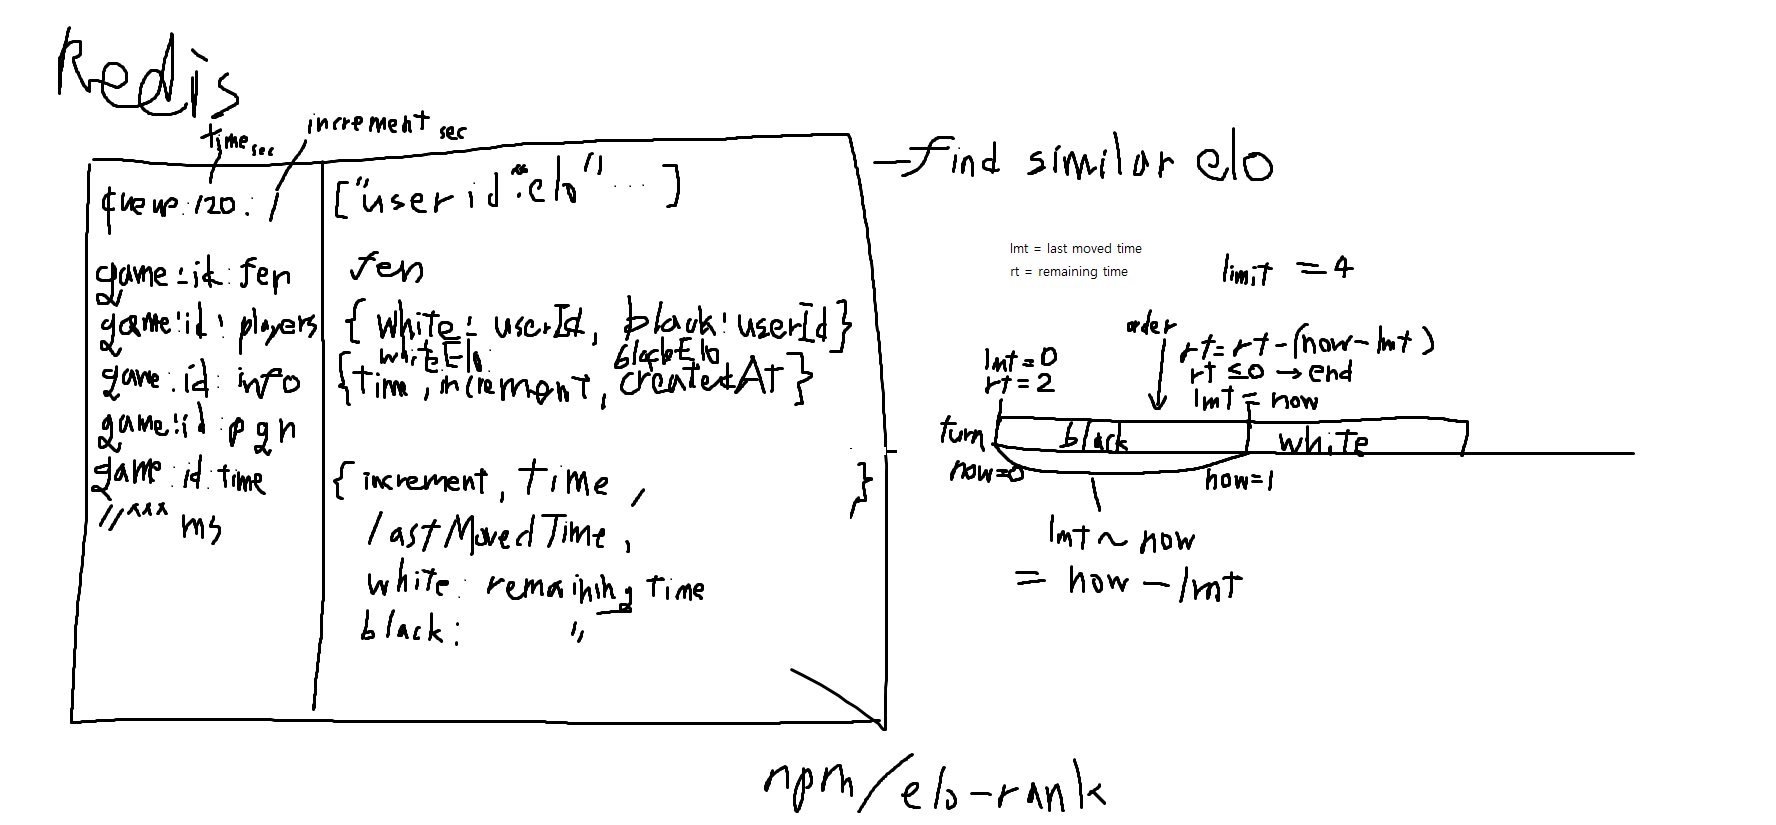 Redis
time sec
increment sec
queue:120:1
["userid:elo" ... ]
- find similar elo
game:id:fen
fen
game:id:players
{ white: userId, black: userId}
whiteElo
blackElo
game:id:info
{time, increment, createdAt}
game:id:pgn
game:id:time
{ increment, time,
}
ms
lastMovedTime,
white: remaining time
black: "
lmt = last moved time
rt = remaining time
limit = 4
order
rt=rt-(now-lmt)
rt ≤0 → end
lmt = now
lmt=0
rt=2
turn
black
white
now=0
now=1
lmt ~ now
= now - lmt
npm/elo-rank